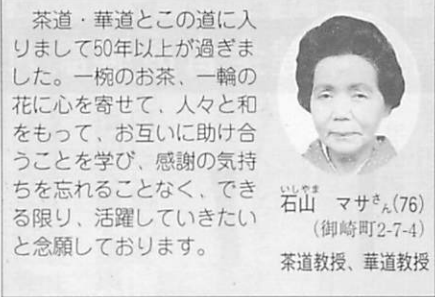 茶道・華道とこの道に入
りまして50年以上が過ぎま
した。一椀のお茶、一輪の
花に心を寄せて、人々と和
をもって、お互いに助け合
うことを学び、感謝の気持
ちを忘れることなく、でき
る限り、活躍していきたい
と念願しております。
いしやま
石山　マサさん(76)
(御崎町2-7-4)
茶道教授、華道教授